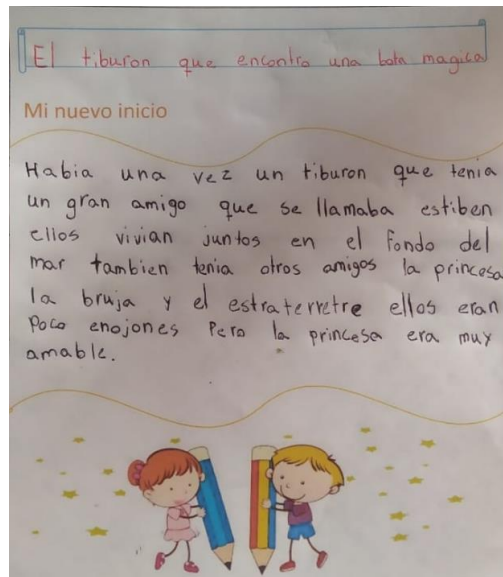 El tiburon que encontro una bota magica
Mi nuevo inicio
Habia una vez un tiburon que tenia
un gran amigo que se llamaba estiben
ellos vivian juntos en el fondo del
mar tambien tenia otros amigos la princesa
la bruja y el estraterretre ellos eran
Poco enojones Pero la princesa era muy
amable.